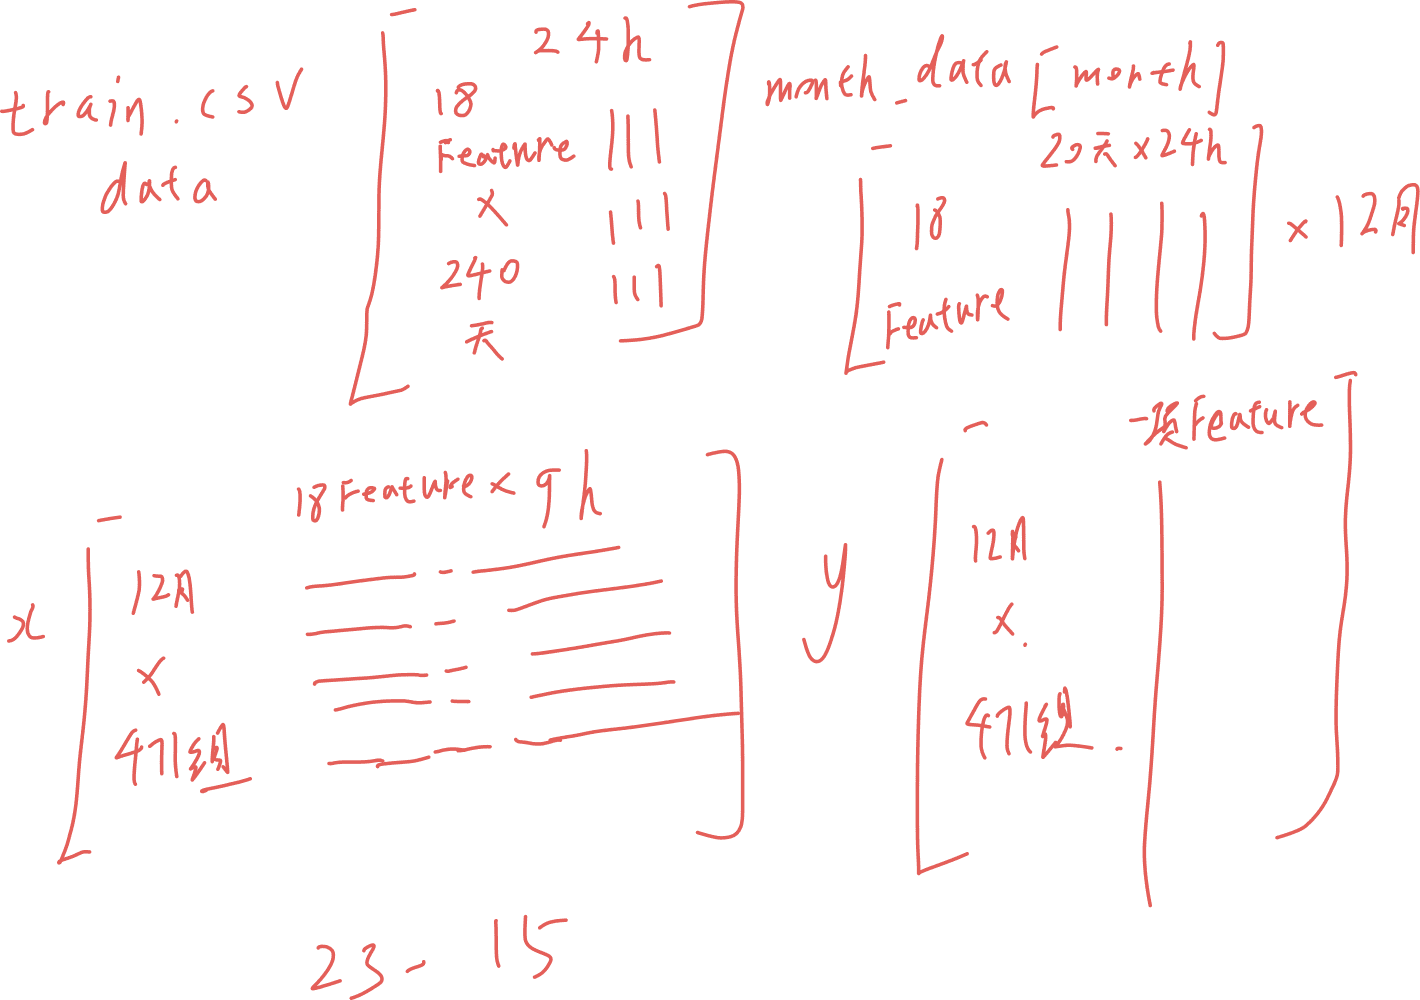 train.csv
data
24h
18
Feature
×
240
天
month_data[month]
20天×24h
18
Feature
×12月
x
18Feature×9h
12月
×
471组
y
一项Feature
12月
×
471组
23-15